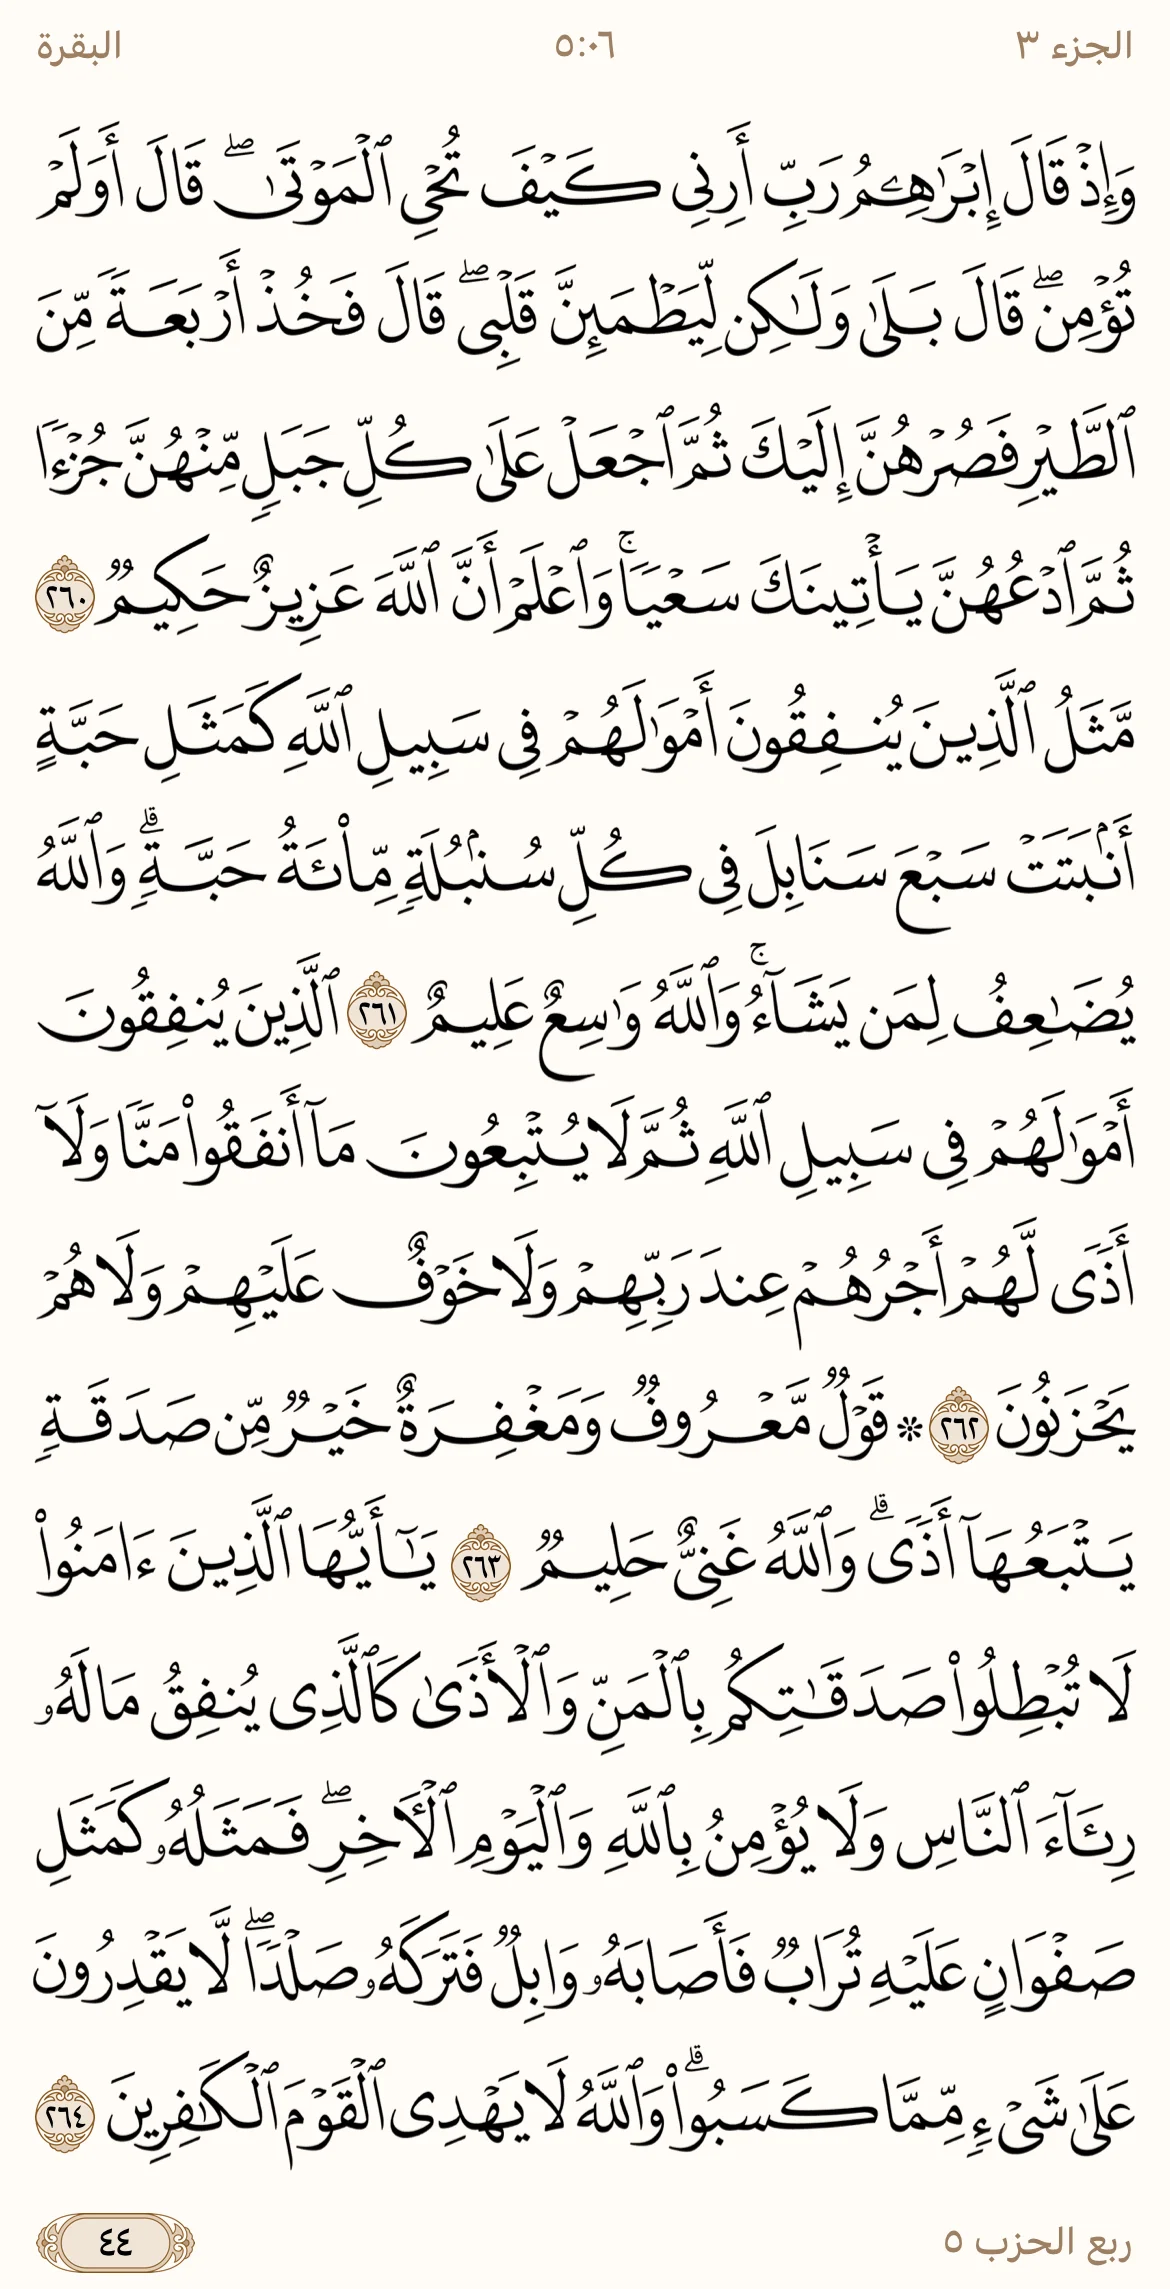 الجزء ٣ ٥:٠٦ البقرة
وَإِذۡ قَالَ إِبۡرَٰهِـۧمُ رَبِّ أَرِنِي كَيۡفَ تُحۡيِ ٱلۡمَوۡتَىٰۖ قَالَ أَوَلَمۡ
تُؤۡمِنۖ قَالَ بَلَىٰ وَلَٰكِن لِّيَطۡمَئِنَّ قَلۡبِيۖ قَالَ فَخُذۡ أَرۡبَعَةٗ مِّنَ
ٱلطَّيۡرِ فَصُرۡهُنَّ إِلَيۡكَ ثُمَّ ٱجۡعَلۡ عَلَىٰ كُلِّ جَبَلٖ مِّنۡهُنَّ جُزۡءٗا
ثُمَّ ٱدۡعُهُنَّ يَأۡتِينَكَ سَعۡيٗاۚ وَٱعۡلَمۡ أَنَّ ٱللَّهَ عَزِيزٌ حَكِيمٞ ٢٦٠
مَّثَلُ ٱلَّذِينَ يُنفِقُونَ أَمۡوَٰلَهُمۡ فِي سَبِيلِ ٱللَّهِ كَمَثَلِ حَبَّةٍ
أَنۢبَتَتۡ سَبۡعَ سَنَابِلَ فِي كُلِّ سُنۢبُلَةٖ مِّاْئَةُ حَبَّةٖۗ وَٱللَّهُ
يُضَٰعِفُ لِمَن يَشَآءُۚ وَٱللَّهُ وَٰسِعٌ عَلِيمٌ ٢٦١ ٱلَّذِينَ يُنفِقُونَ
أَمۡوَٰلَهُمۡ فِي سَبِيلِ ٱللَّهِ ثُمَّ لَا يُتۡبِعُونَ مَآ أَنفَقُواْ مَنّٗا وَلَآ
أَذٗى لَّهُمۡ أَجۡرُهُمۡ عِندَ رَبِّهِمۡ وَلَا خَوۡفٌ عَلَيۡهِمۡ وَلَا هُمۡ
يَحۡزَنُونَ ٢٦٢ * قَوۡلٞ مَّعۡرُوفٞ وَمَغۡفِرَةٌ خَيۡرٞ مِّن صَدَقَةٖ
يَتۡبَعُهَآ أَذٗىۗ وَٱللَّهُ غَنِيٌّ حَلِيمٞ ٢٦٣ يَٰٓأَيُّهَا ٱلَّذِينَ ءَامَنُواْ
لَا تُبۡطِلُواْ صَدَقَٰتِكُم بِٱلۡمَنِّ وَٱلۡأَذَىٰ كَٱلَّذِي يُنفِقُ مَالَهُۥ
رِئَآءَ ٱلنَّاسِ وَلَا يُؤۡمِنُ بِٱللَّهِ وَٱلۡيَوۡمِ ٱلۡأٓخِرِۖ فَمَثَلُهُۥ كَمَثَلِ
صَفۡوَانٍ عَلَيۡهِ تُرَابٞ فَأَصَابَهُۥ وَابِلٞ فَتَرَكَهُۥ صَلۡدٗاۖ لَّا يَقۡدِرُونَ
عَلَىٰ شَيۡءٖ مِّمَّا كَسَبُواْۗ وَٱللَّهُ لَا يَهۡدِي ٱلۡقَوۡمَ ٱلۡكَٰفِرِينَ ٢٦٤
ربع الحزب ٥ ٤٤